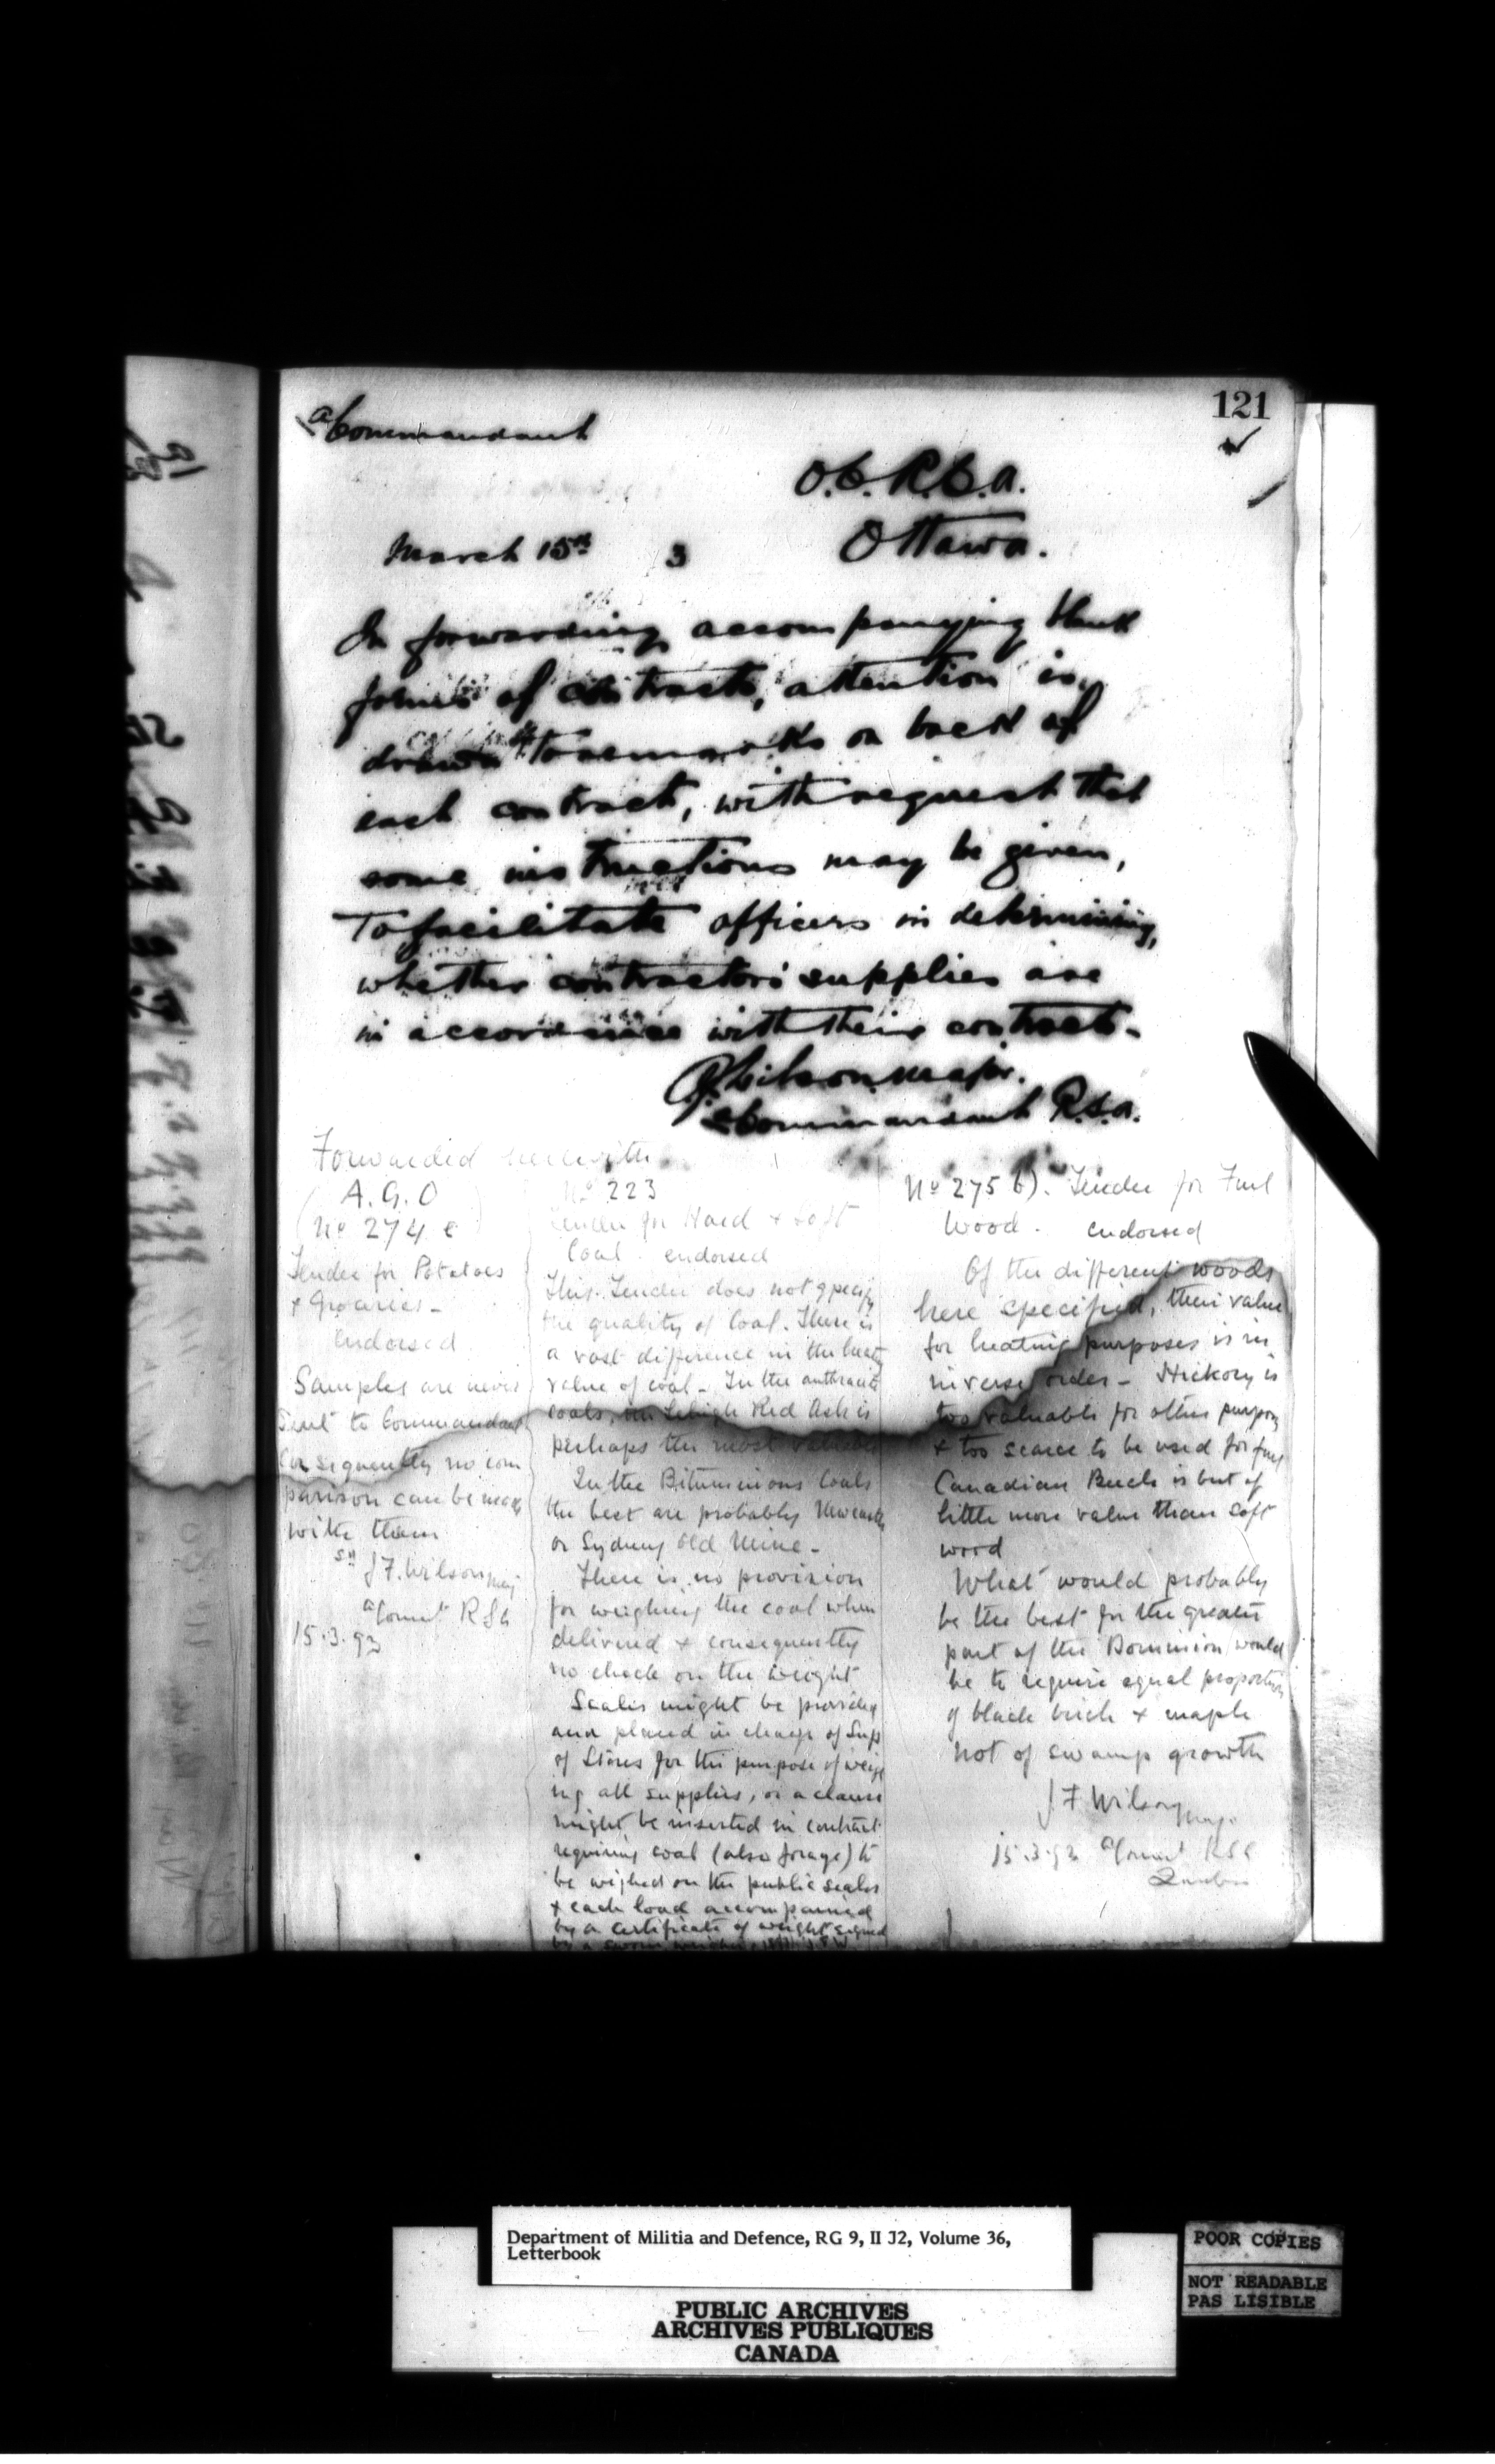 121
a/Commandant
O.C. R.C.A.
Ottawa.
March 15th 3
In forwarding accompanying blank
forms of contracts, attention is
drawn to remarks on back of
each contract, with request that
some instructions may be given,
To facilitate officers in determining,
whether contractors supplies are
in accordance with their contracts.
Wilson Major.
a/Commandant R.S.A.
Forwarded herewith
A.G.O
No 274 e
Tender for Potatoes
& Groceries -
Endorsed
Samples are never
sent to Commandant
Consequently no com
parison can be made
with them
J F. Wilson Maj
a/Comt R S A
15.3.93
No 223
Tender for Hard & Soft
Coal. endorsed
This Tender does not specify
the quality of Coal. There is
a vast difference in the
value of coal - In the anthracite
coals, Lehigh Red Ash is
perhaps the most valuable
In the Bituminous Coals
the best are probably Newcastle
or Sydney Old Mine -
There is no provision
for weighing the coal when
delivered & consequently
no check on the weight
Scales might be provided
and placed in charge of Supt
of Stores for the purpose of weigh
ing all supplies, or a clause
might be inserted in contract
requiring coal (also forage) to
be wighed on the public scales
& each load accompanied
by a certificate of weight signed
by a sworn weigher. J F W
No 275 b). Tender for Fuel
Wood. endorsed
Of the different woods
here specified, their value
for heating purposes is in
inverse order - Hickory is
too valuable for other purpos
& too scarce to be used for fuel
Canadian Beech is but of
little more value than soft
wood
What would probably
be the best for the greater
part of the Dominion would
be to require equal proportions
of black birch & maple
not of swamp growth
J F Wilson Major
15.3.93 a/Comt RSA
Quebec
Department of Militia and Defence, RG 9, II J2, Volume 36,
Letterbook
PUBLIC ARCHIVES
ARCHIVES PUBLIQUES
CANADA
POOR COPIES
NOT READABLE
PAS LISIBLE